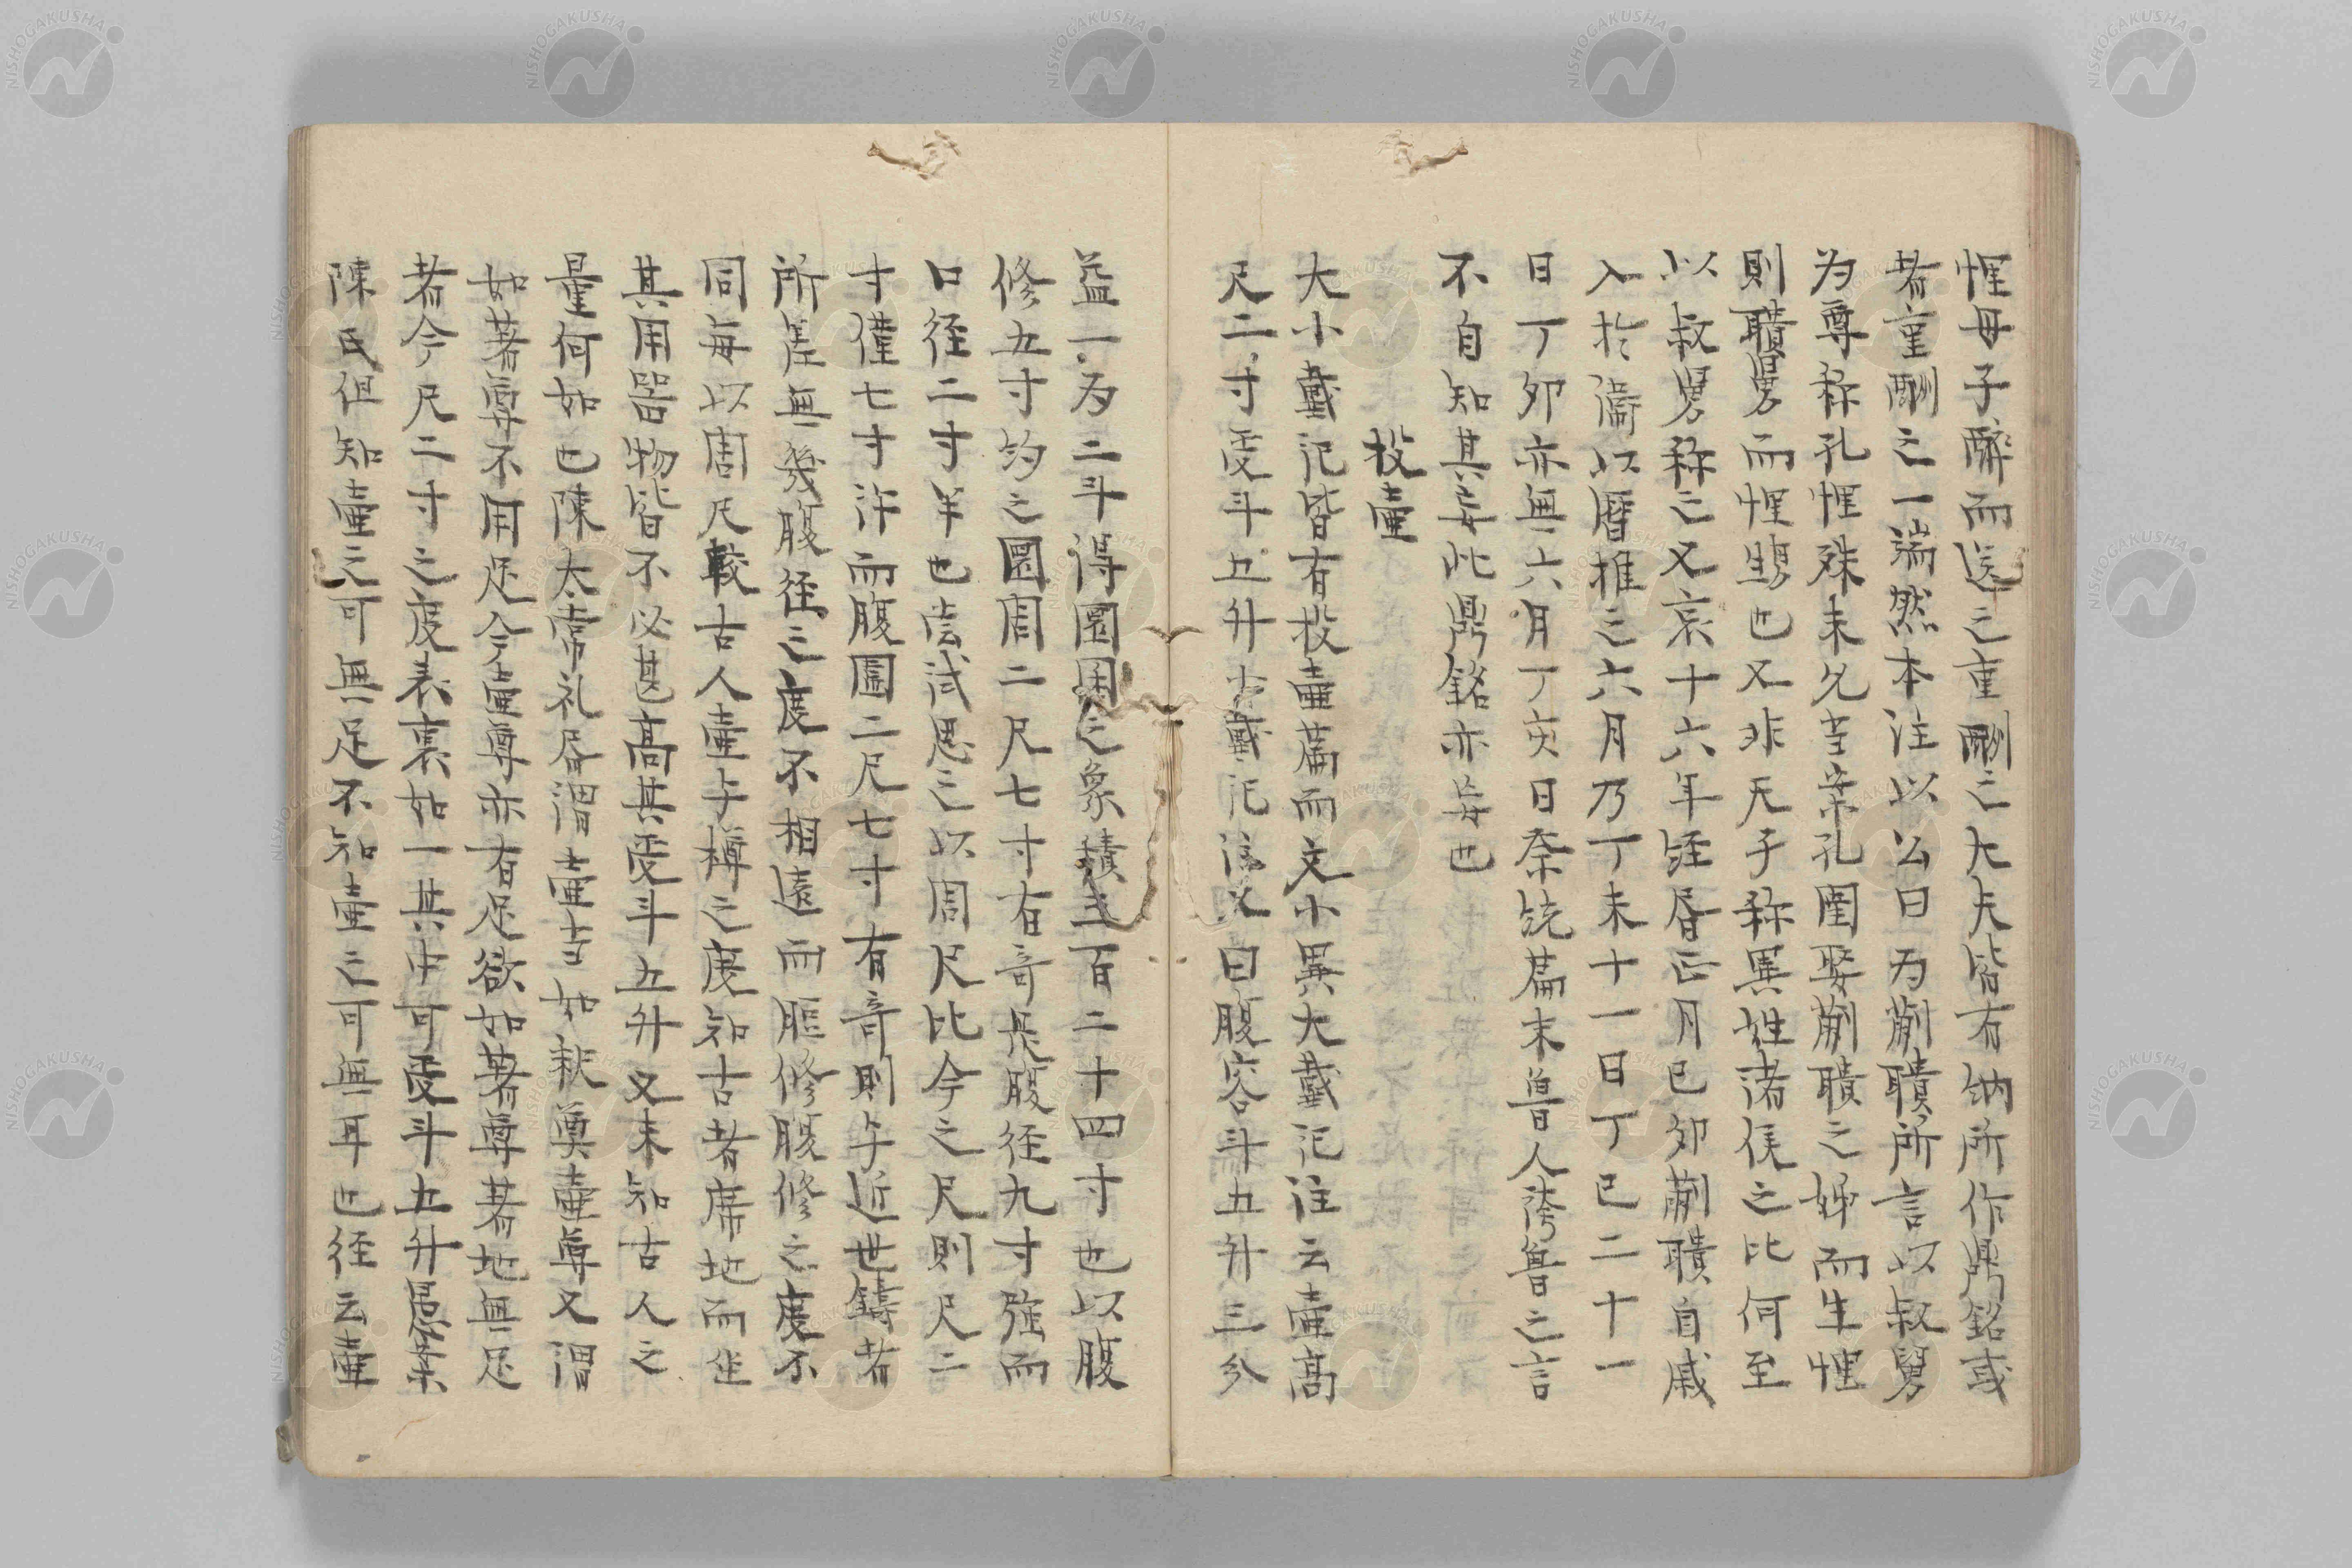 悝母子醉而送之重酬之大夫皆有納所作鼎銘或
者重酬之一端然本注以公曰為蒯聵所言以叔舅
为尊称孔悝殊未允吉案孔圉娶蒯聵之姊而生悝
則聵舅而悝甥也又非天子称異姓諸侯之比何至
以叔舅称之又哀十六年経春正月己卯蒯聵自戚
入於衞以曆推之六月乃丁未十一日丁巳二十一
日丁卯亦無六月丁亥日祭統篇末魯人誇魯之言
不自知其妄此鼎銘亦妄也
投壷
大小戴記皆有投壷篇而文小異大戴記注云壷高
尺二寸受斗五升小戴記注又曰腹容斗五升三分
益一为二斗得圜囷之象積三百二十四寸也以腹
修五寸約之圜周二尺七寸有奇是腹径九寸強而
口径二寸半也嘗試思之以周尺比今之尺則尺二
寸僅七寸許而腹圍二尺七寸有奇則与近世鋳者
所差無幾腹径之度不相遠而脰修腹修之度不
同毎以周尺較古人壷与樽之度知古者席地而坐
其用器物皆不必甚高其受斗五升又未知古人之
量何如也陳太常礼書謂壷吉如耿奠壷尊又謂
如著尊不用足今壷尊亦有足欲如著尊著地無足
者今尺二寸之度表裏如一其中可受斗五升愚案
陳氏但知壷之可無足不知壷之可無耳也径云壷